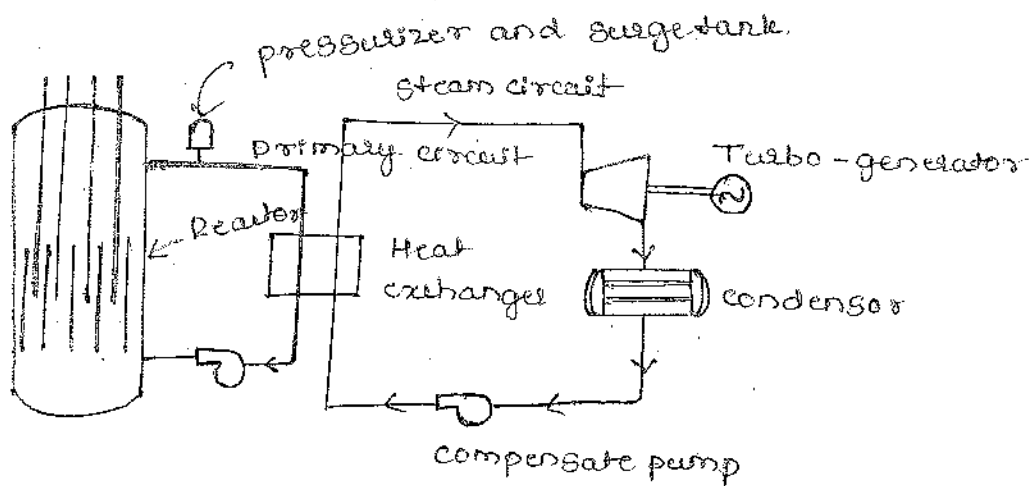 pressurizer and surgetank.
steam circuit
primary circuit
Turbo-generator
Reactor
Heat
exchanger
condensor
compensate pump